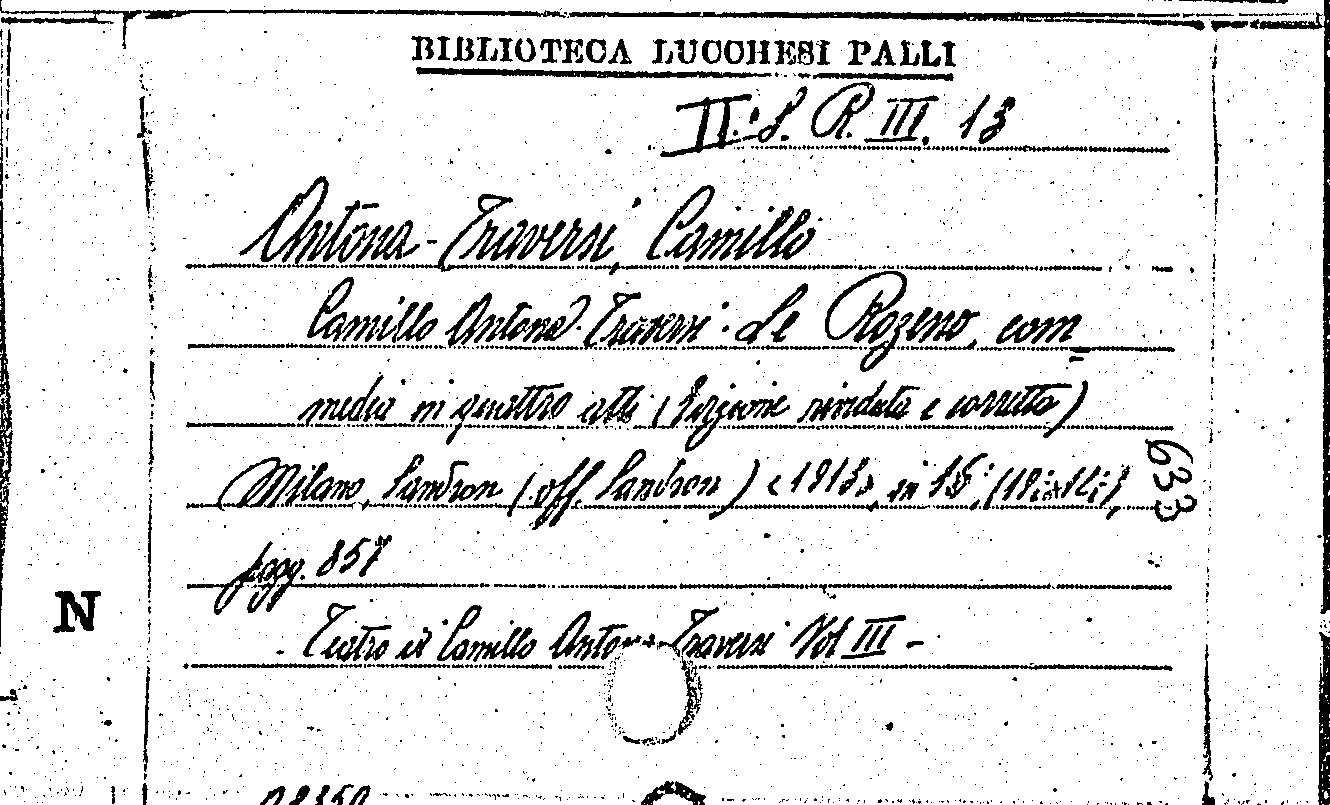 BIBLIOTECA LUCCHESI PALLI
II.ª S. R. III. 13
Antona-Traversi, Camillo
Camillo Antona-Traversi. Le Rozeno, com
media in quattro atti (Edizione riveduta e corretta)
Milano, Sandron (off. Sandron) <1913>, in 16°,
633
pagg. 857
N
Teatro di Camillo Antona-Traversi Vol III -